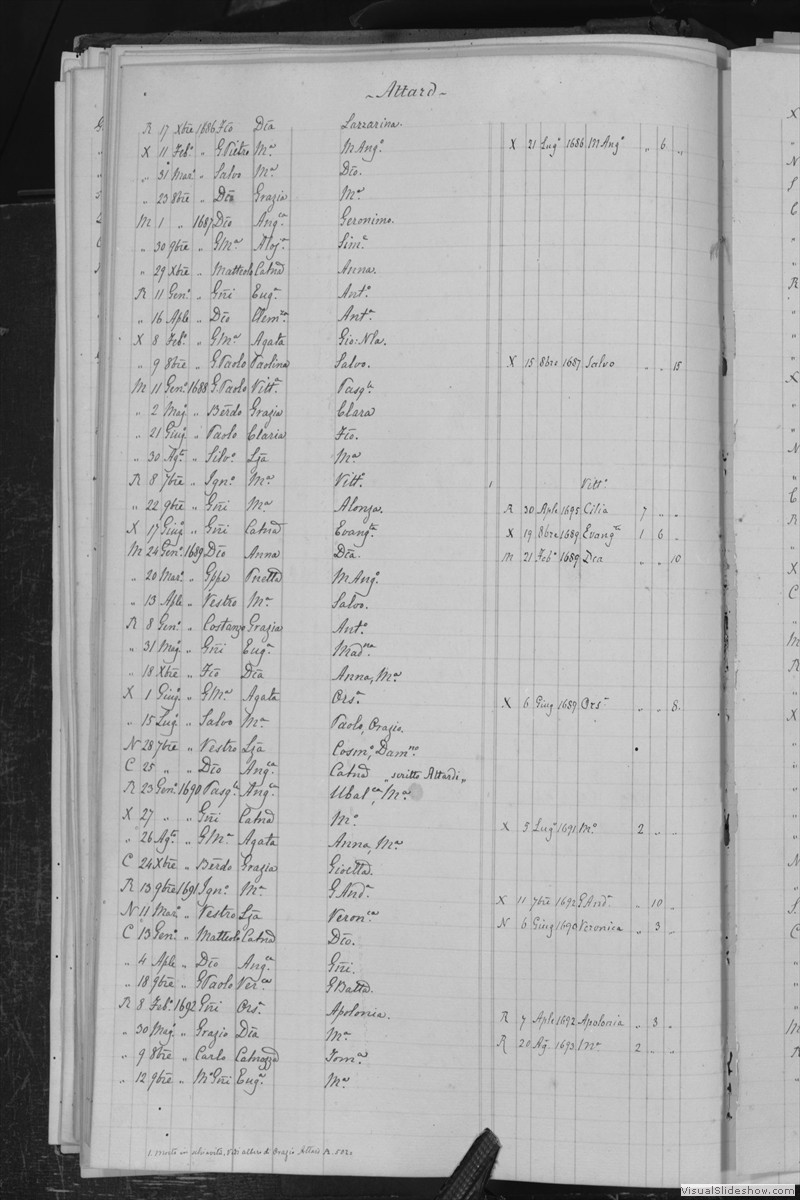 ~ Attard ~
R 17 Xbre 1686 Fco Dca Lazzarina.
X 11 Feb.° „ G Pietro M.ª M Ang.° X 21 Lug° 1686 M Ang° „ 6 „
„ 31 Mar° „ Salvo M.ª Dco.
„ 23 8bre „ Dco Grazia M.ª
M 1 „ 1687 Dco Ang.ca Geronimo.
„ 30 9bre „ G M.ª Aloj.ª Sim.e
„ 29 Xbre „ Matteolo Catnd Anna.
R 11 Gen.° „ Gñi Eug.ª Ant.°
„ 16 Aple „ Dco Clem.za Ant.ª
X 8 Feb.° „ G M.ª Agata Gio: Nla.
„ 9 8bre „ G Paolo Paolina Salvo. X 15 8bre 1687 Salvo „ „ 15
M 11 Gen.° 1688 G. Paolo Vitt.ª Pasq.le
„ 2 Mag. „ Berdo Grazia Clara
„ 21 Giug. „ Paolo Claria Fco.
„ 30 Ag.° „ Silv.° Lja M.ª
R 8 7bre „ Ign.° M.ª Vitt.ª 1 Vitt.ª
„ 22 9bre „ Gñi M.ª Alonza. R 30 Aple 1695 Cilia 7 „ „
X 17 Giug. „ Gñi Catnd Evang.ta X 19 8bre 1689 Evang.ta 1 6 „
M 24 Gen.° 1689 Dco Anna Dca. M 21 Feb.° 1689 Dca „ „ 10
„ 20 Mar.° „ Gppe Pnetta M Ang.°
„ 13 Aple „ Vestro M.ª Salvo.
R 8 Gen.° „ Costanzo Grazia Ant.°
„ 31 Mag. „ Gñi Eug.ª Mad.na
„ 18 Xbre „ Fco Dca Anna, M.ª
X 1 Giug. „ G M.ª Agata Ors.ª X 6 Giug 1689 Ors.ª „ „ 8.
„ 15 Lug. „ Salvo M.ª Paolo, Orazio.
N 28 7bre „ Vestro Lja Cosm.°, Dam.no
C 25 „ „ Dco Ang.ca Catnd „ scritto Attardi „
R 23 Gen.° 1690 Pasq.le Ang.ca Ubal.ca, M.ª
X 27 „ „ Gñi Catnd M.ª X 5 Lug° 1691 M.ª 2 „ „
„ 26 Ag.° „ G M.ª Agata Anna, M.ª
C 24 Xbre „ Berdo Grazia Gisetta.
R 13 9bre 1691 Ign.° M.ª G And.ª X 11 7bre 1692 G And.ª „ 10 „
N 11 Mar.° „ Vestro Lja Veron.ca N 6 Giug 1690 Veronica „ 3 „
C 13 Gen.° „ Matteolo Catnd Dco.
„ 4 Aple „ Dco Ang.ca Gñi.
„ 18 9bre „ G Paolo Ver.ca G Batta.
R 8 Feb.° 1692 Gñi Ors.ª Apolonia. R 7 Aple 1692 Apolonia „ 3 „
„ 30 Mag. „ Grazio Dca M.ª R 20 Ag. 1693 M.ª 2 „ „
„ 9 8bre „ Carlo Catnazza Tom.ª
„ 12 9bre „ M.° Gñi Eug.ª M.ª
1. Morto in Orazio Attard R. 502.
VisualSlideshow.com